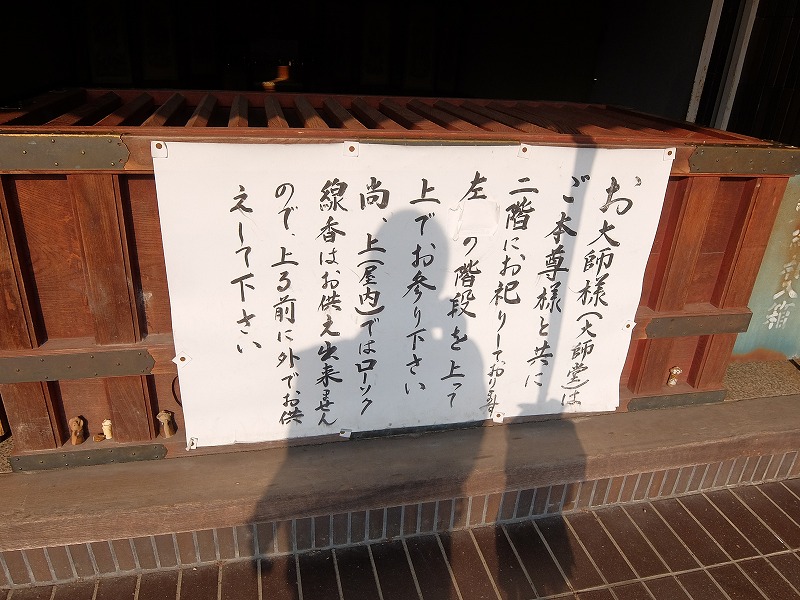 お大師様(大師堂)は
ご本尊様と共に
二階にお祀りしております。
左の階段を上って
上でお参り下さい
尚、上(屋内)ではローソク
線香はお供え出来ません
ので、上る前に外でお供
えして下さい